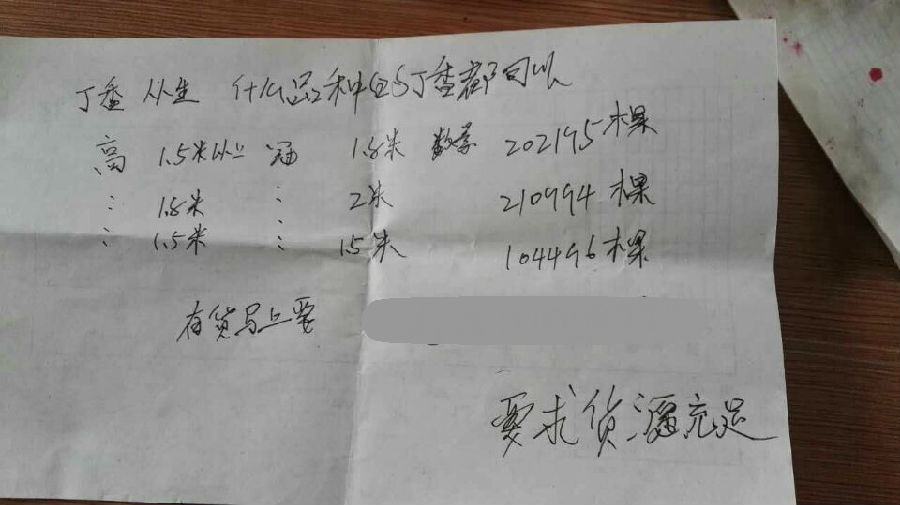 丁香 从生 什么品种的丁香都可以
高 1.5米以上 冠 1.8米 数量 202195棵
: 1.8米 : 2米 210994棵
: 1.5米 : 1.5米 104496棵
有货马上要
要求货源充足